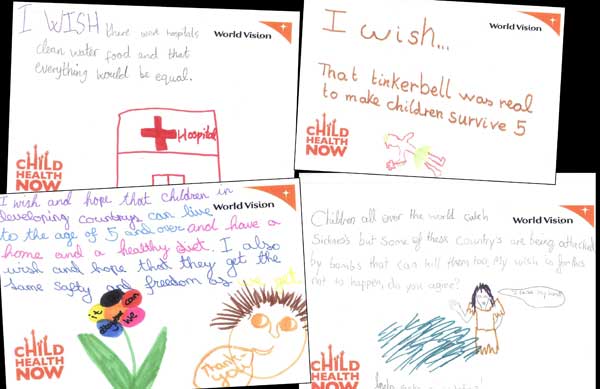 I WISH there were hospitals
clean water food and that
everything would be equal.
World Vision
Hospital
CHILD
HEALTH
NOW
I wish...
World Vision
That tinkerbell was real
to make children survive 5
CHILD
HEALTH
NOW
I wish and hope that children in
developing countrys can live
to the age of 5 and over and have a
home and a healthy diet. I also
wish and hope that they get the
same safty and freedom as
World Vision
it
can
we
Thank-
you
CHILD
HEALTH
NOW
World Vision
Children all over the world catch
Sickness but some of these country's are being attacked
by bombs that can kill them too. My wish is for this
not to happen, do you agree?
CHILD
HEALTH
NOW